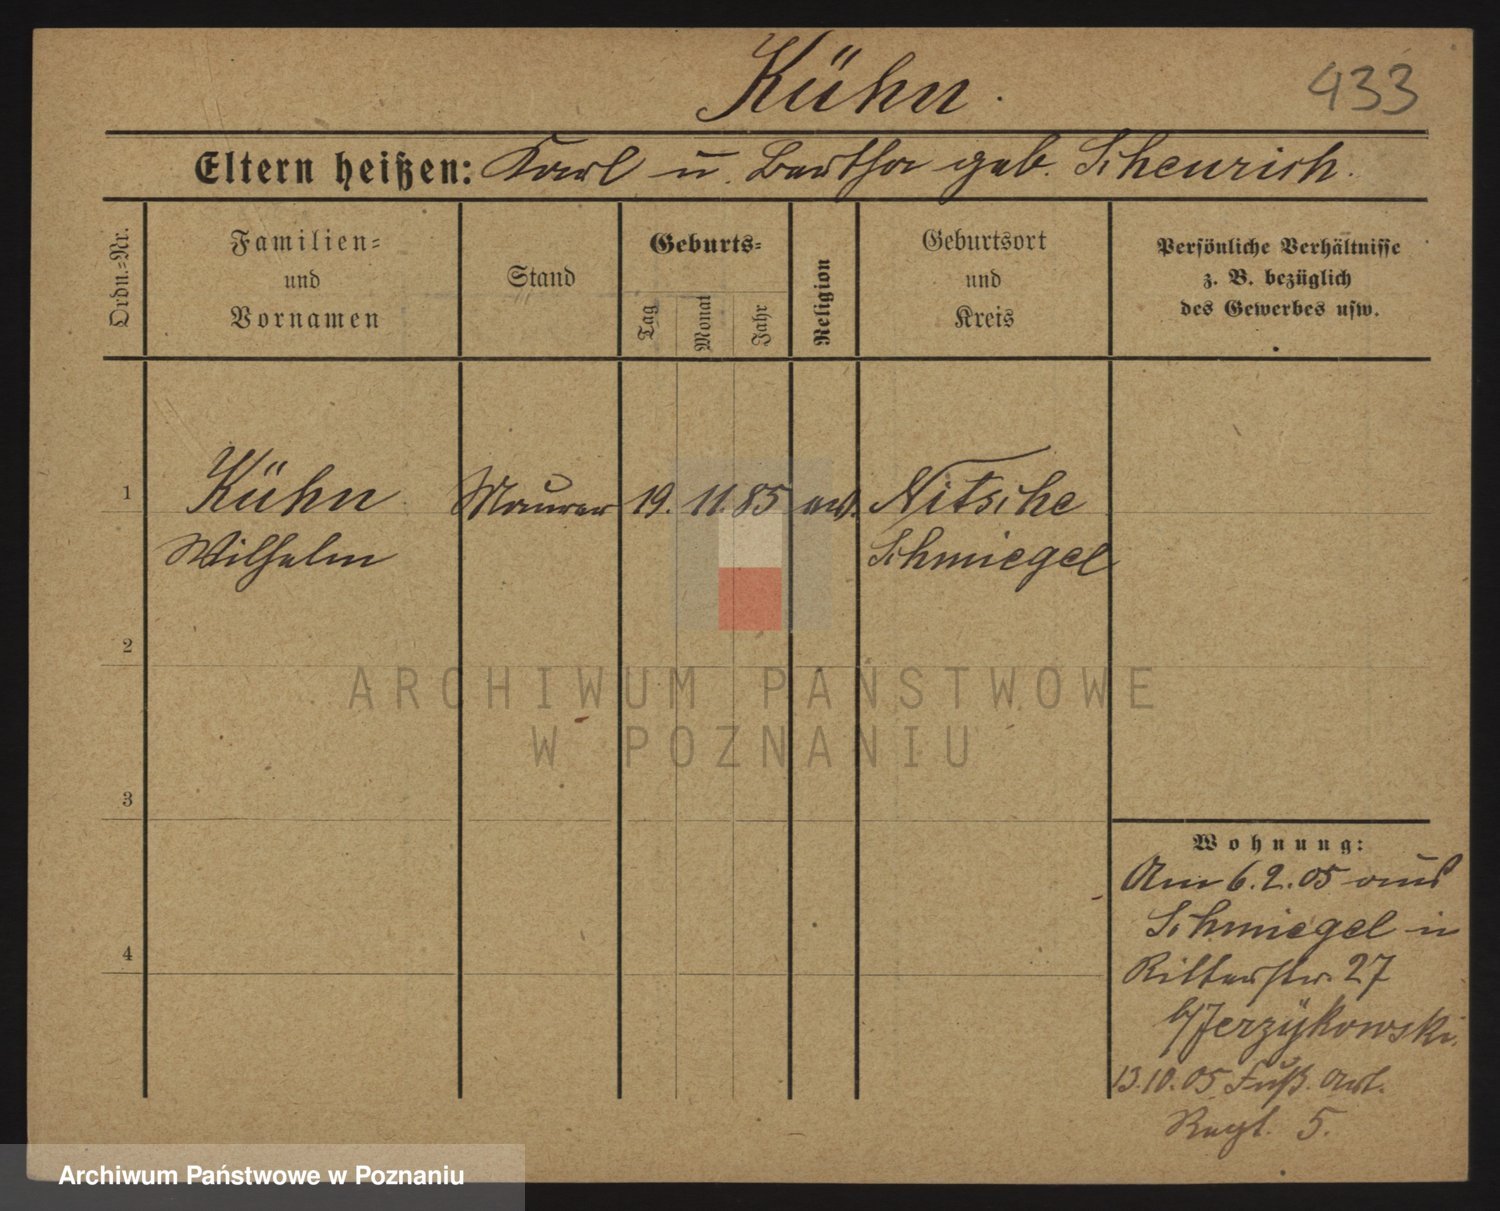 Kühn.
433
Eltern heißen: Karl u. Bertha geb. Scheurich.
Ordn.-Nr.
Familien-
und
Vornamen
Stand
Geburts-
Tag
Monat
Jahr
Religion
Geburtsort
und
Kreis
Persönliche Verhältnisse
z. B. bezüglich
des Gewerbes usw.
1
Kühn Maurer 19. 11. 85 ev. Nitsche
Wilhelm Schmiegel
2
ARCHIWUM PAŃSTWOWE
W POZNANIU
3
4
Wohnung:
Am 6.2.05 aus
Schmiegel in
Ritterstr. 27
b/Jerzÿkowski.
13.10.05 Fuß. Art.
Regt. 5.
Archiwum Państwowe w Poznaniu